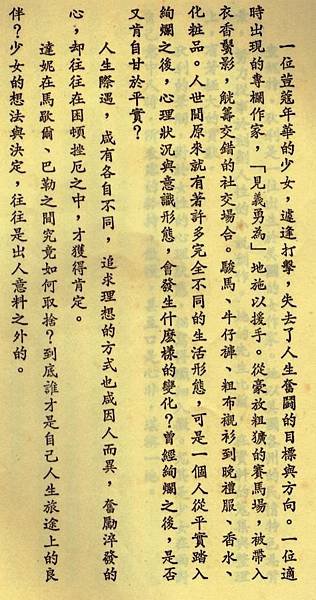 一位荳蔻年華的少女，遽逢打擊，失去了人生奮鬪的目標與方向。一位適
時出現的專欄作家，「見義勇為」地施以援手。從豪放粗獷的賽馬場，被帶入
衣香鬢影，觥籌交錯的社交場合。駿馬、牛仔褲、粗布襯衫到晚禮服、香水、
化粧品。人世間原來就有著許多完全不同的生活形態，可是一個人從平實踏入
絢爛之後，心理狀況與意識形態，會發生什麼樣的變化？曾經絢爛之後，是否
又肯自甘於平實？
人生際遇，咸有各自不同，追求理想的方式也咸因人而異，奮勵淬發的
心，却往往在困頓挫厄之中，才獲得肯定。
達妮在馬歇爾、巴勒之間究竟如何取捨？到底誰才是自己人生旅途上的良
伴？少女的想法與決定，往往是出人意料之外的。